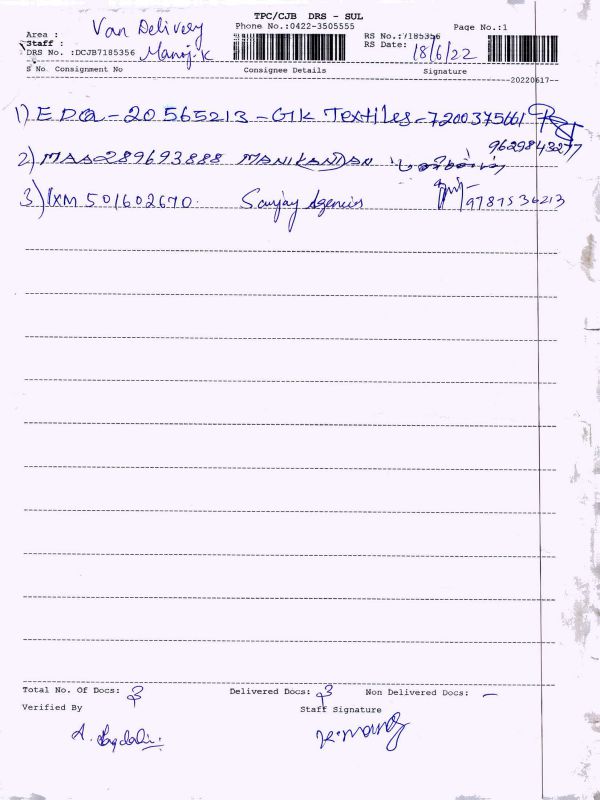 TPC/CJB DRS - SUL
Area : Van Delivery Phone No.:0422-3505555 Page No.:1
Staff : Manoj.K RS No.:7185356
DRS No. :DCJB7185356 RS Date: 18/6/22
S No. Consignment No Consignee Details Signature
20220617
1) EDQ-20 565213 - GTK Textiles - 7200375661
9629843277
2) MAA289693888 MANIKANDAN
3) IXM 501602670. Sanjay Agencies 9787536213
Total No. Of Docs: 3 Delivered Docs: 3 Non Delivered Docs: -
Verified By Staff Signature
K.Manoj